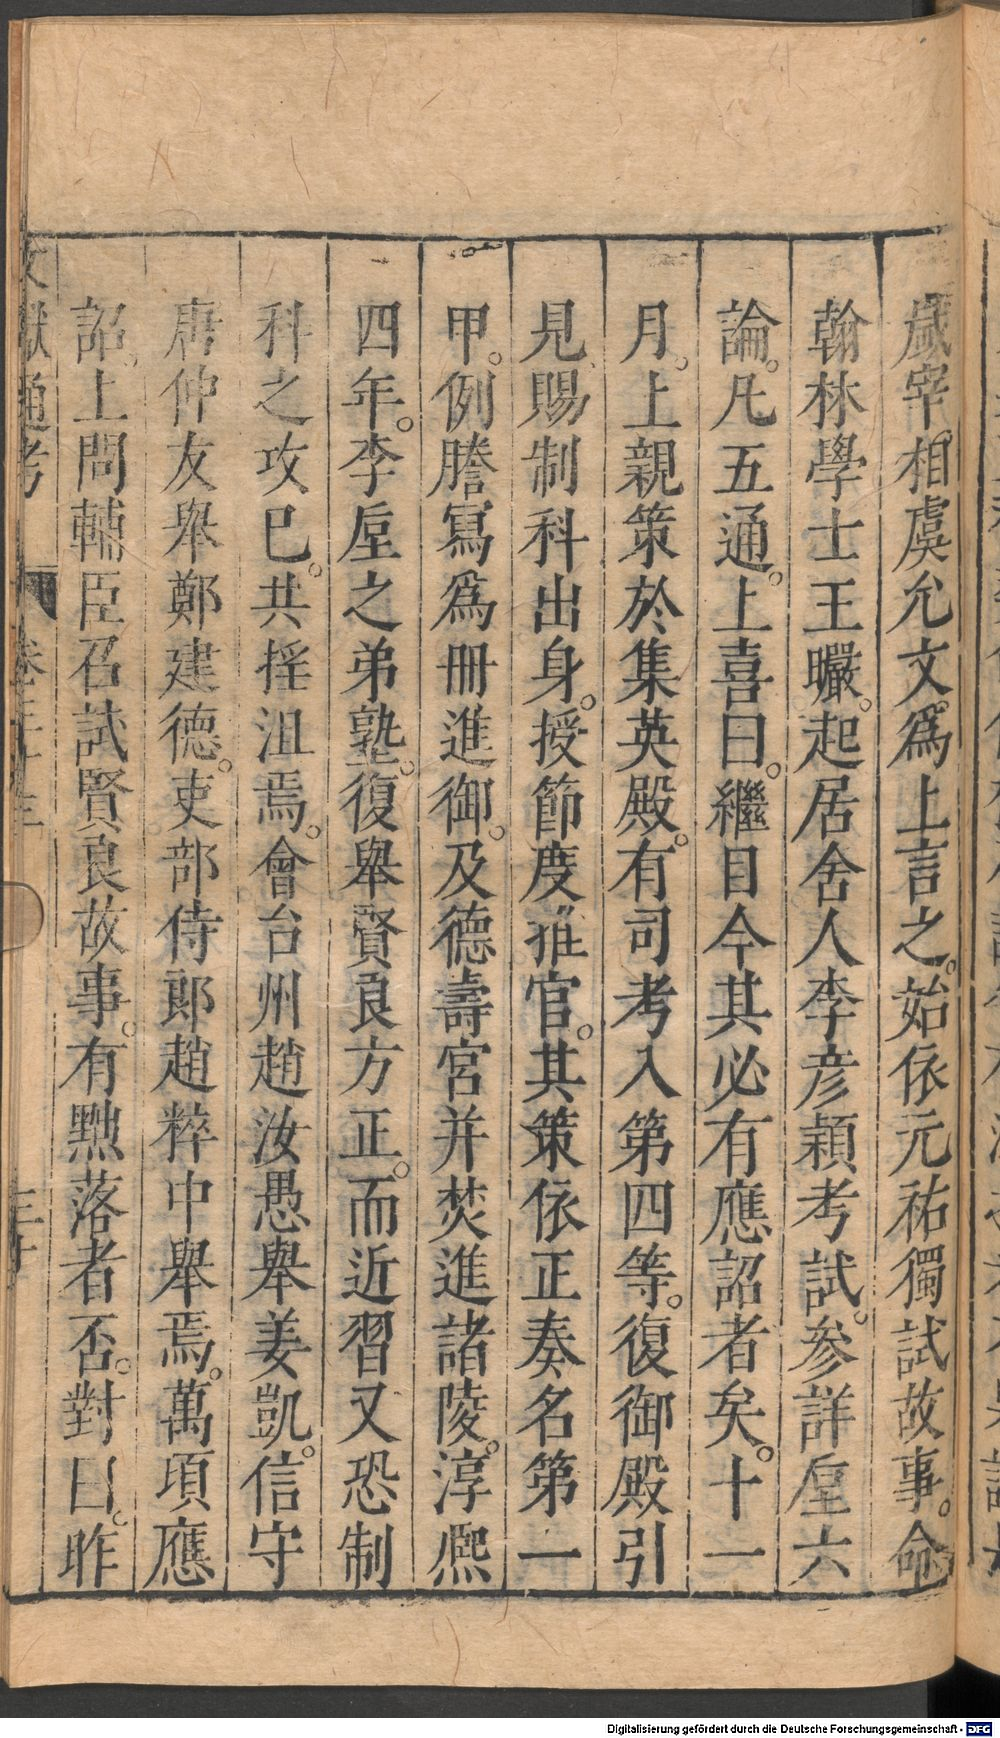 歲宰相虞允文爲上言之。始依元祐獨試故事。命
翰林學士王曮。起居舍人李彥穎考試。參詳垕六
論。凡五通。上喜曰。繼自今其必有應詔者矣。十一
月。上親策於集英殿。有司考入第四等。復御殿引
見賜制科出身。授節度推官。其策依正奏名第一
甲。例謄寫爲冊進御。及德壽宮并焚進諸陵。淳熙
四年。李垕之弟塾。復舉賢良方正。而近習又恐制
科之攻已。共搖沮焉。會台州趙汝愚舉姜凱。信守
唐仲友舉鄭建德。吏部侍郎趙粹中舉焉。萬頃應
詔。上問輔臣召試賢良故事。有黜落者否。對曰。昨
文獻通考
卷三十三
Digitalisierung gefördert durch die Deutsche Forschungsgemeinschaft - DFG